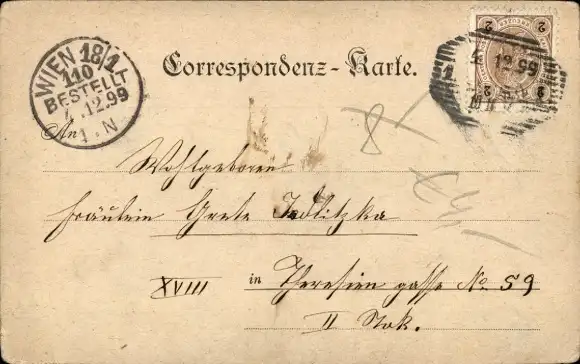 WIEN 18/1
110
BESTELLT
12.99
1.N
Correspondenz-Karte.
2 KREUZER 2
12.99
An
Wohlgeboren
Fräulein Grete Jedlitzka
XVIII in Theresien gasse No 59
II Stok.